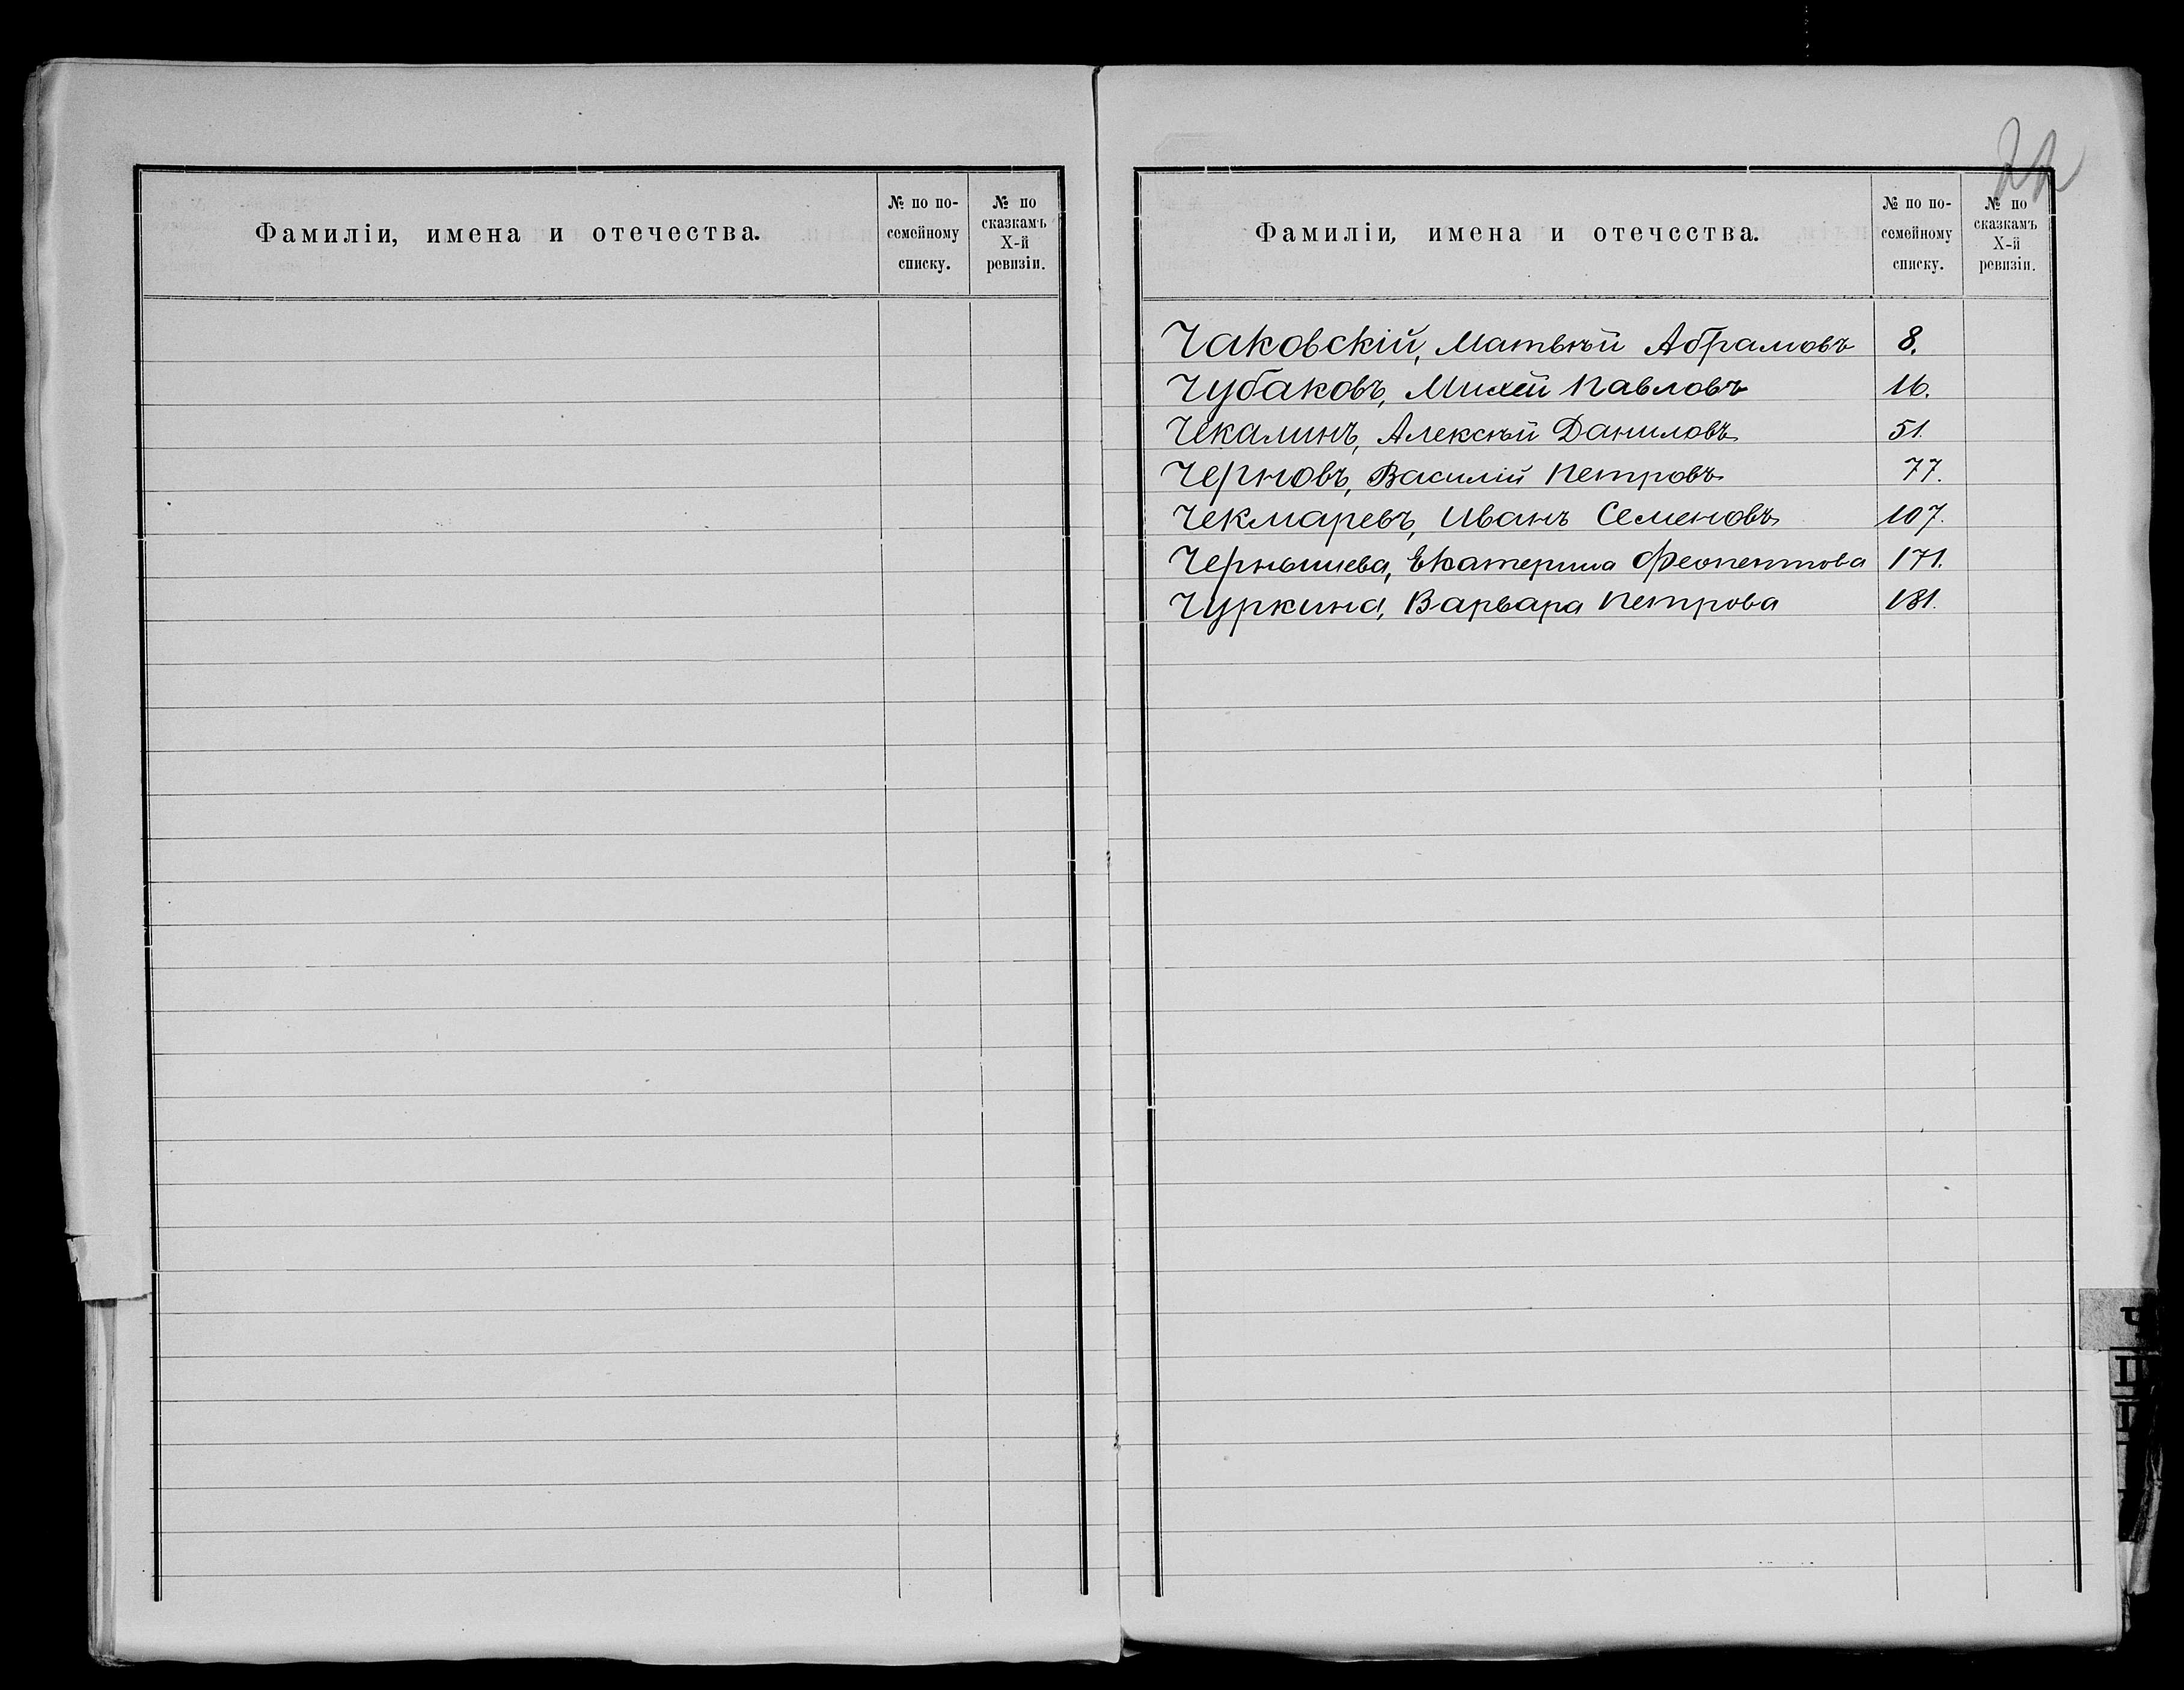 Фамиліи, имена и отечества.
№ по по-
семейному
списку.
№ по
сказкамъ
X-й
ревизіи.
22
Фамиліи, имена и отечества.
№ по по-
семейному
списку.
№ по
сказкамъ
X-й
ревизіи.
Чаковскій, Матвѣй Абрамовъ 8.
Чубаковъ, Михей Павловъ 16.
Чекалинъ, Алексѣй Даниловъ 51.
Черновъ, Василій Петровъ 77.
Чекмаревъ, Иванъ Семеновъ 107.
Чернышева, Екатерина Феопентова 171.
Чуркина, Варвара Петрова 181.
Ч